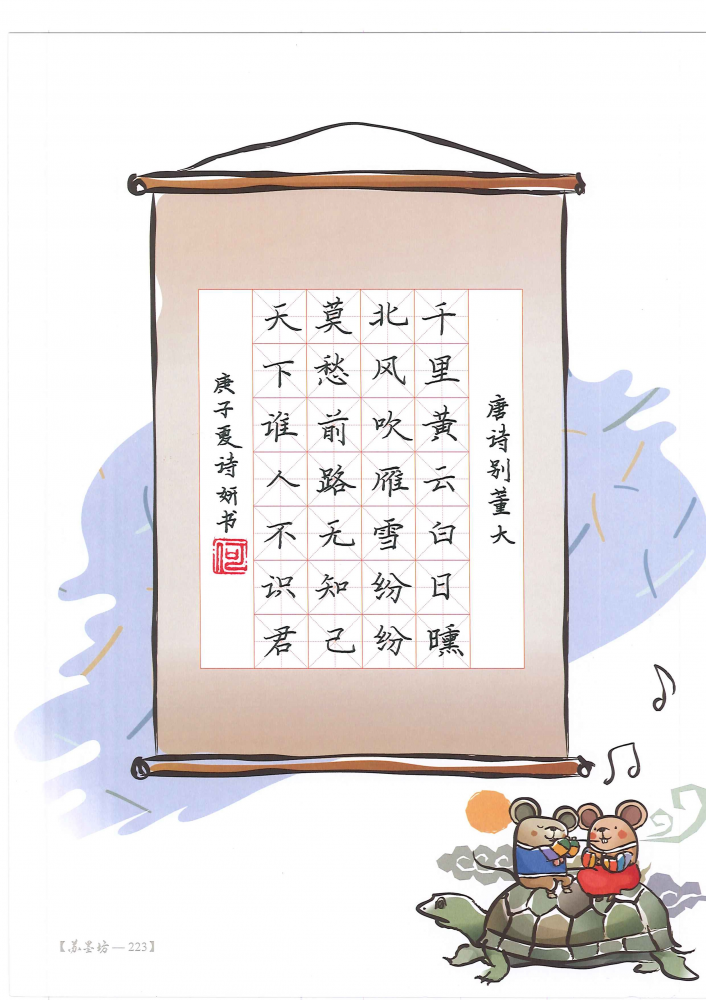 唐诗别董大
千里黄云白日曛
北风吹雁雪纷纷
莫愁前路无知己
天下谁人不识君
庚子夏诗妍书
何
【苏墨坊—223】